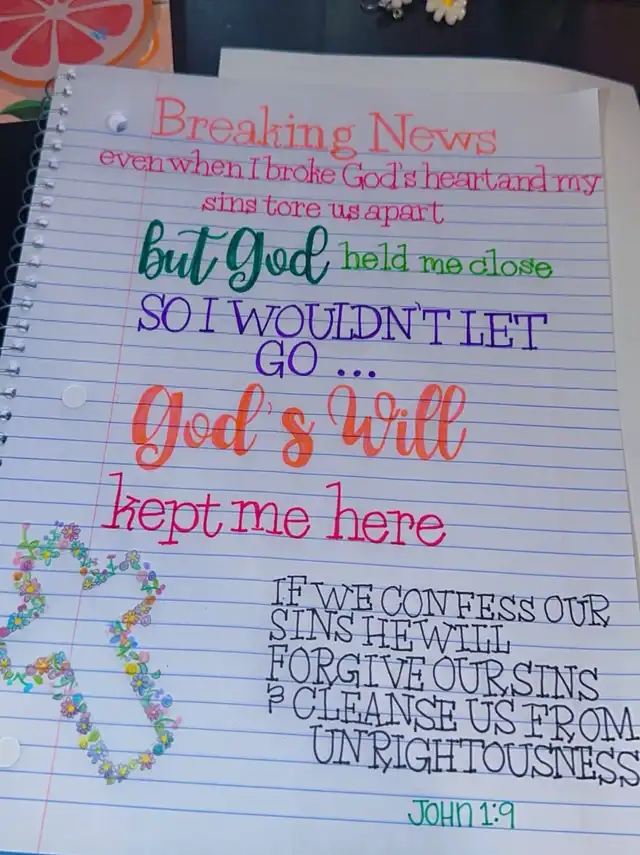 Breaking News
even when I broke God's heart and my
sins tore us apart
but God held me close
SO I WOULDN'T LET
GO ...
God's Will
kept me here
IF WE CONFESS OUR
SINS HE WILL
FORGIVE OUR SINS
& CLEANSE US FROM
UNRIGHTOUSNESS
JOHN 1:9